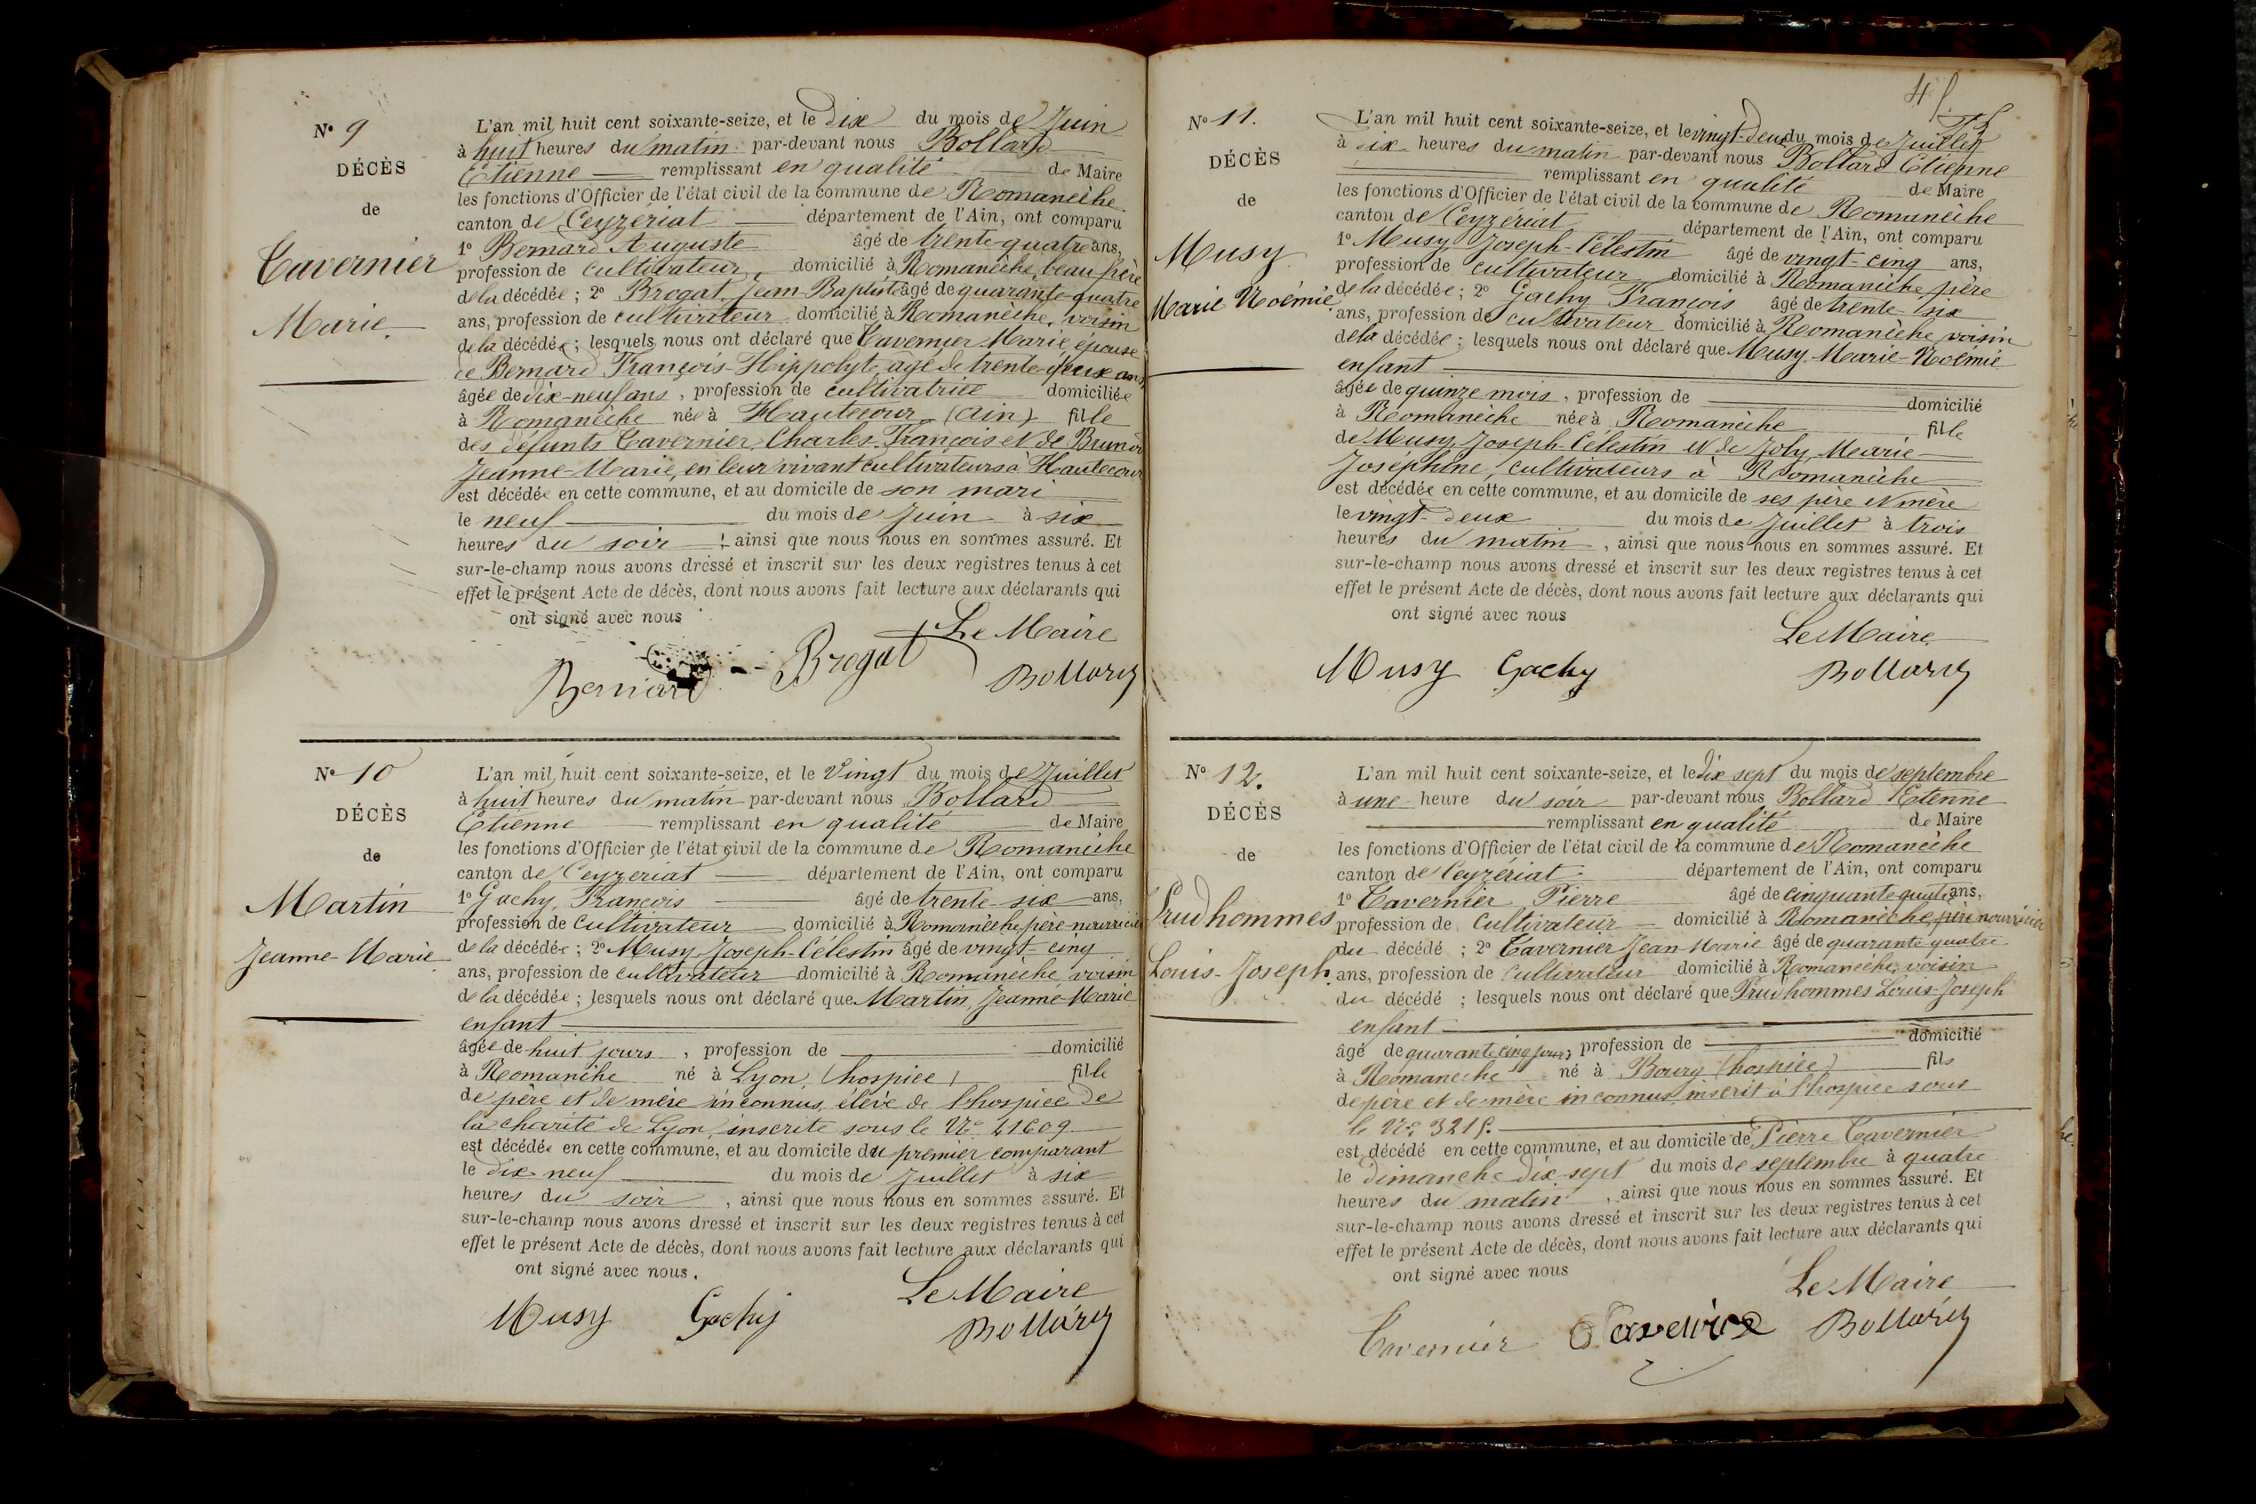 Nº 9
DÉCÈS
de
Tavernier
Marie.
L'an mil huit cent soixante-seize, et le dix du mois de Juin
à huit heures du matin par-devant nous Bollard
Etienne remplissant en qualité de Maire
les fonctions d'Officier de l'état civil de la commune de Romanèche
canton de Ceyzériat département de l'Ain, ont comparu
1º Bernard Auguste âgé de trente-quatre ans,
profession de cultivateur, domicilié à Romanèche, beau frère
de la décédée ; 2º Brogat Jean-Baptiste âgé de quarante-quatre
ans, profession de cultivateur domicilié à Romanèche, voisin
de la décédée ; lesquels nous ont déclaré que Tavernier Marie, épouse
de Bernard François-Hippolyte, âgé de trente-deux ans,
âgée de dix-neuf ans, profession de cultivatrice domiciliée
à Romanèche née à Hautecour (Ain) fille
des défunts Tavernier Charles-François et de
Jeanne-Marie, en leur vivant cultivateurs à Hautecour
est décédée en cette commune, et au domicile de son mari
le neuf du mois de Juin à six
heures du soir, ainsi que nous nous en sommes assuré. Et
sur-le-champ nous avons dressé et inscrit sur les deux registres tenus à cet
effet le présent Acte de décès, dont nous avons fait lecture aux déclarants qui
ont signé avec nous
Le Maire
Bernard Brogat Bollard
Nº 10
DÉCÈS
de
Martin
Jeanne-Marie
L'an mil huit cent soixante-seize, et le vingt du mois de Juillet
à huit heures du matin par-devant nous Bollard
Etienne remplissant en qualité de Maire
les fonctions d'Officier de l'état civil de la commune de Romanèche
canton de Ceyzériat département de l'Ain, ont comparu
1º Gachy François âgé de trente-six ans,
profession de cultivateur domicilié à Romanèche père nourricier
de la décédée ; 2º Musy Joseph-Célestin âgé de vingt-cinq
ans, profession de cultivateur domicilié à Romanèche voisin
de la décédée ; lesquels nous ont déclaré que Martin Jeanne-Marie
enfant
âgée de huit jours, profession de domicilié
à Romanèche né à Lyon, (hospice) fille
de père et de mère inconnus, élève de l'hospice de
la charité de Lyon, inscrite sous le Nº 41609
est décédée en cette commune, et au domicile du premier comparant
le dix-neuf du mois de Juillet à six
heures du soir, ainsi que nous nous en sommes assuré. Et
sur-le-champ nous avons dressé et inscrit sur les deux registres tenus à cet
effet le présent Acte de décès, dont nous avons fait lecture aux déclarants qui
ont signé avec nous.
Le Maire
Musy Gachy Bollard
Nº 11.
DÉCÈS
de
Musy
Marie Noémie
L'an mil huit cent soixante-seize, et le vingt-deux du mois de Juillet
à dix heures du matin par-devant nous Bollard Etienne
remplissant en qualité de Maire
les fonctions d'Officier de l'état civil de la commune de Romanèche
canton de Ceyzériat département de l'Ain, ont comparu
1º Musy Joseph-Célestin âgé de vingt-cinq ans,
profession de cultivateur domicilié à Romanèche père
de la décédée ; 2º Gachy François âgé de trente-six
ans, profession de cultivateur domicilié à Romanèche voisin
de la décédée ; lesquels nous ont déclaré que Musy Marie-Noémie
enfant
âgée de quinze mois, profession de domicilié
à Romanèche née à Romanèche fille
de Musy Joseph-Célestin et de Joly Marie
Joséphine, cultivateurs à Romanèche
est décédée en cette commune, et au domicile de ses père et mère
le vingt-deux du mois de Juillet à trois
heures du matin, ainsi que nous nous en sommes assuré. Et
sur-le-champ nous avons dressé et inscrit sur les deux registres tenus à cet
effet le présent Acte de décès, dont nous avons fait lecture aux déclarants qui
ont signé avec nous
Le Maire
Musy Gachy Bollard
Nº 12.
DÉCÈS
de
Prudhommes
Louis-Joseph.
L'an mil huit cent soixante-seize, et le dix sept du mois de septembre
à une heure du soir par-devant nous Bollard Etienne
remplissant en qualité de Maire
les fonctions d'Officier de l'état civil de la commune de Romanèche
canton de Ceyzériat département de l'Ain, ont comparu
1º Tavernier Pierre âgé de cinquante-quatre ans,
profession de cultivateur domicilié à Romanèche, père nourricier
du décédé ; 2º Tavernier Jean Marie âgé de quarante quatre
ans, profession de cultivateur domicilié à Romanèche, voisin
du décédé ; lesquels nous ont déclaré que Prudhommes Louis-Joseph
enfant
âgé de quarante cinq jours, profession de domicilié
à Romanèche né à Bourg (hospice) fils
de père et de mère inconnus, inscrit à l'hospice sous
le Nº 3215.
est décédé en cette commune, et au domicile de Pierre Tavernier
le dimanche dix-sept du mois de septembre à quatre
heures du matin, ainsi que nous nous en sommes assuré. Et
sur-le-champ nous avons dressé et inscrit sur les deux registres tenus à cet
effet le présent Acte de décès, dont nous avons fait lecture aux déclarants qui
ont signé avec nous
Le Maire
Tavernier Tavernier Bollard